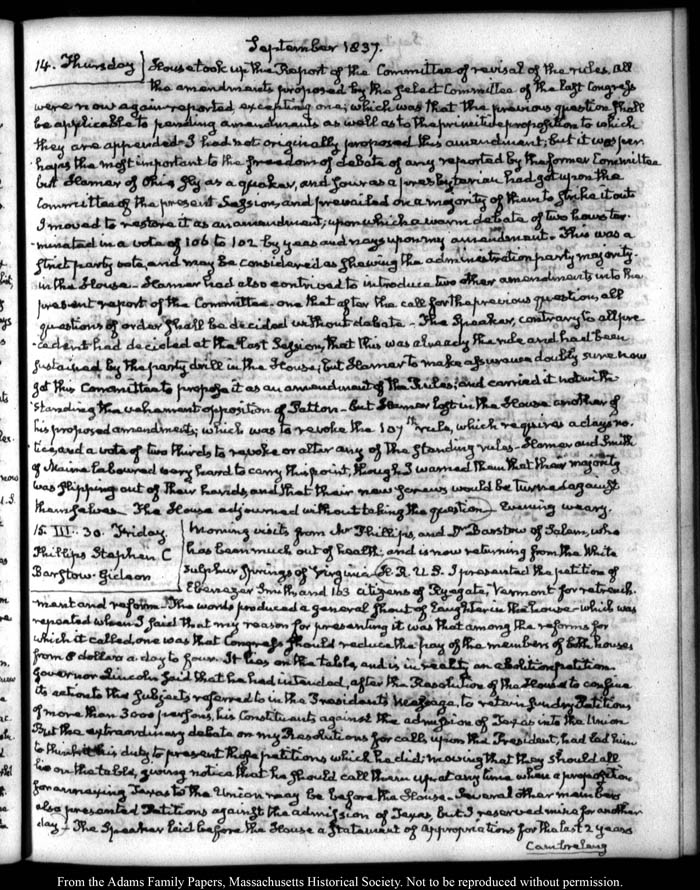 September 1837.
14. Thursday House took up the Report of the Committee of revisal of the rules. All
the amendments proposed by the select Committee of the last Congress
were now again reported excepting one; which was that the previous question shall
be applicable to pending amendments as well as to the primitive proposition to which
they are appended. I had not originally proposed this amendment; but it was per
haps the most important to the freedom of debate of any reported by the former Committee
but Hamer of Ohio, sly as a quaker, and sour as a presbyterian had got upon the
Committee of the present Session, and prevailed on a majority of them to strike it out
I moved to restore it as an amendment; upon which a warm debate of two hours ter-
minated in a vote of 106 to 102 by yeas and nays upon my amendment. This was a
strict party vote, and may be considered as shewing the administration party majority
in the House. Hamer had also contrived to introduce two other amendments into the
present report of the Committee. one that after the call for the previous question, all
questions of order shall be decided without debate. The Speaker, contrary to all pre-
cedent had decided at the last Session, that this was already the rule and had been
sustained by the party drill in the House; but Hamer to make assurance doubly sure now
got this Committee to propose it as an amendment of the Rules; and carried it notwith-
standing the vehement opposition of Patton. But Hamer lost in the House another of
his proposed amendments; which was to revoke the 107th rule, which requires a days no-
tice, and a vote of two thirds to revoke or alter any of the standing rules. Hamer and Smith
of Maine laboured very hard to carry this point, though I warned them that their majority
was slipping out of their hands, and that their new screws would be turned against
themselves. The House adjourned without taking the question. Evening weary.
15. III. 30. Friday. Morning visits from Mr Phillips, and Dr Barstow of Salem, who
Phillips Stephen C has been much out of health; and is now returning from the White
Barstow. Gideon Sulphur Springs of Virginia. H.R.U.S. I presented the petition of
Ebenezer Smith and 163 citizens of Ryegate, Vermont for retrench-
ment and reform. The words produced a general shout of laughter in the house. which was
repeated when I said that my reason for presenting it was that among the reforms for
which it called one was that Congress should reduce the pay of the members of both houses
from 8 dollars a day to four. It lies on the table, and is in reality an abolition petition.
Governor Lincoln said that he had intended, after the Resolution of the House to confine
its action to the subjects referred to in the President's Message, to retain sundry Petitions
of more than 3000 persons, his Constituents against the admission of Texas into the Union
But the extraordinary debate on my Resolutions for calls upon the President, had led him
to think it his duty to present those petitions which he did; moving that they should all
lie on the table, giving notice that he should call them up at any time when a proposition
for annexing Texas to the Union may be before the House. Several other members
also presented Petitions against the admission of Texas, but I reserved mine for another
day. The Speaker laid before the House a Statement of appropriations for the last 2 years
Cambreleng
From the Adams Family Papers, Massachusetts Historical Society. Not to be reproduced without permission.